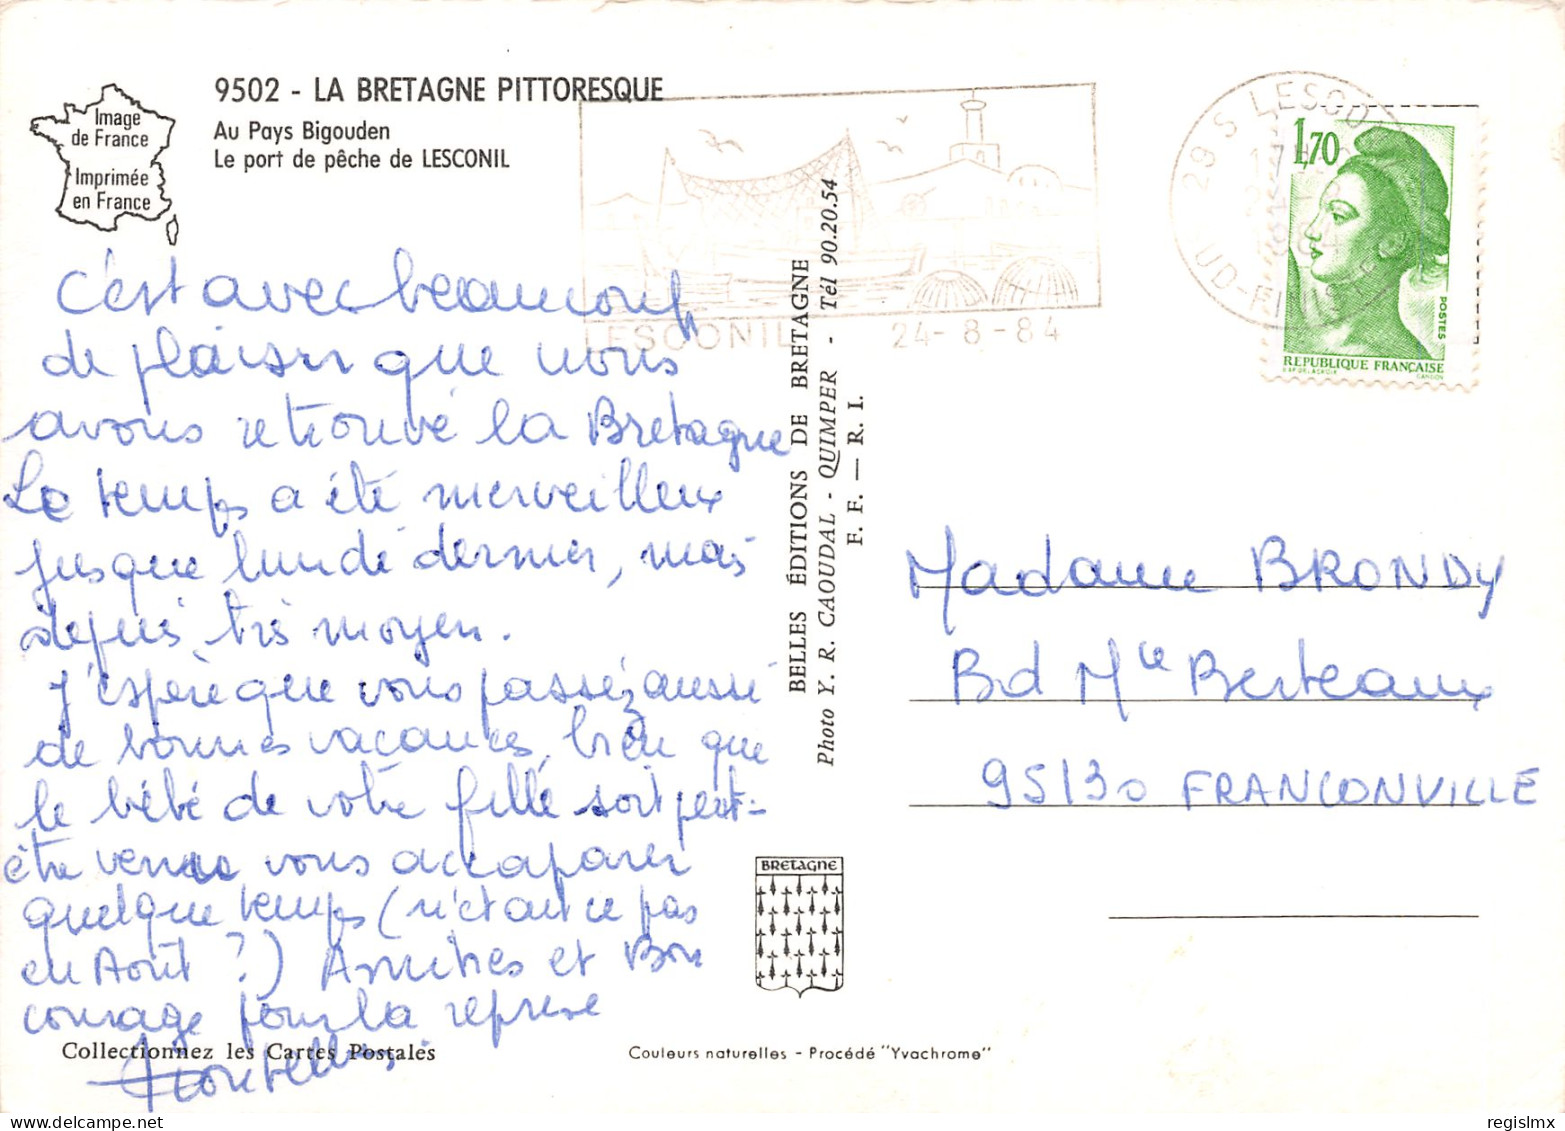 9502 - LA BRETAGNE PITTORESQUE
Au Pays Bigouden
Le port de pêche de LESCONIL
Image
de France
Imprimée
en France
c'est avec beaucoup
de plaisir que nous
avons retrouvé la Bretagne
Le temps a été merveilleux
jusque lundi dernier, mais
depuis très moyen.
J'espère que vous passez aussi
de bonnes vacances, bien que
le bébé de votre fille soit peut-
être venu vous accaparer
quelque temps (n'était ce pas
en Août ?) Amitiés et Bon
courage pour la reprise
Collectionnez les Cartes Postales
Couleurs naturelles - Procédé "Yvachrome"
BELLES ÉDITIONS DE BRETAGNE
Photo Y. R. CAOUDAL - QUIMPER - Tél 90.20.54
F. F. — R. I.
BRETAGNE
LESCONIL 24-8-84
29 S LESCO
17H
UD-FINISTE
1,70
POSTES
REPUBLIQUE FRANÇAISE
Madame BRONDY
Bd Mce Berteaux
95130 FRANCONVILLE
regislmx